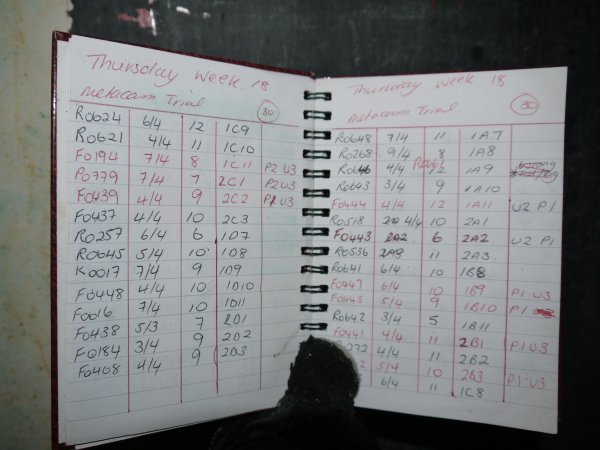 Thursday Week 18
Metacam Trial 30
R0624 6/4 12 1C9
R0621 4/4 11 1C10
F0194 7/4 8 1C11 P2 U3
P0779 7/4 7 2C1 P2U3
F0439 4/4 9 2C2 P1 U3
F0437 4/4 10 2C3
R0257 6/4 6 1D7
R0645 5/4 10 1D8
K0017 7/4 9 1D9
F0448 4/4 10 1D10
F0016 7/4 10 1D11
F0438 5/3 7 2D1
F0184 3/4 9 2D2
F0408 4/4 9 2D3
Thursday Week 18
Metacam Trial 30
R0648 7/4 11 1A7
R0268 9/4 8 1A8
R0646 4/4 12 1A9
R0643 3/4 9 1A10
F0444 4/4 12 1A11 U2 P1
R0518 4/4 10 2A1
F0443 2A2 6 2A2 U2 P1
R0536 2A3 11 2A3
R0641 6/4 10 1B8
F0447 6/4 10 1B9 P1 U3
F0445 5/4 9 1B10 P1
R0642 3/4 5 1B11
F0441 4/4 11 2B1 P1 U3
272 4/4 11 2B2
2 5/4 10 2B3 P1 U3
6/4 11 1C8